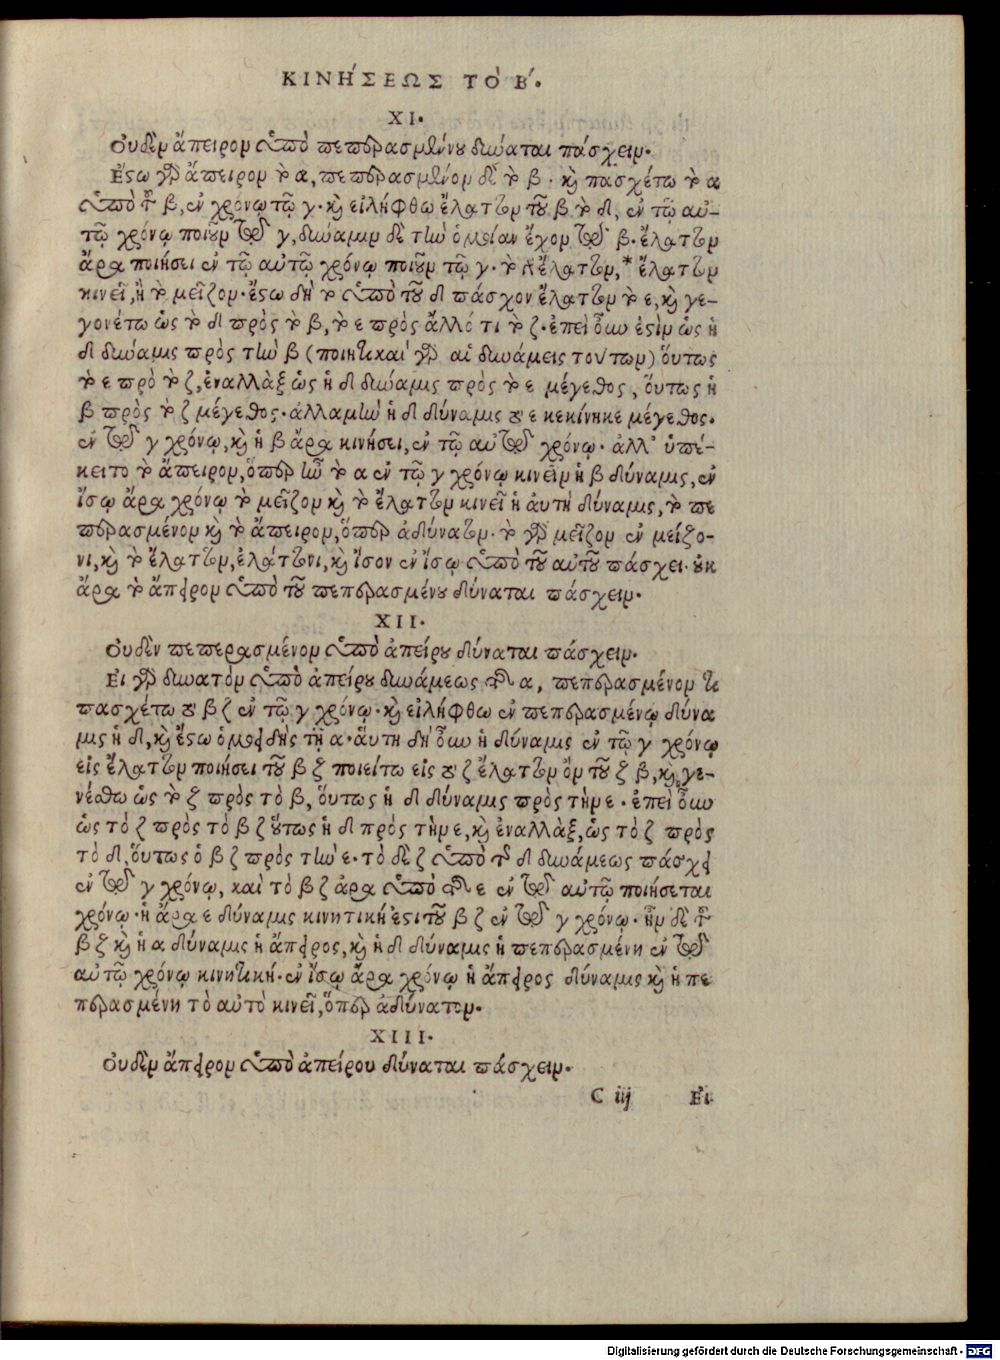 ΚΙΝΉΣΕΩΣ ΤῸ Β΄.
XI.
Οὐδὲν ἄπειρον ὑπὸ πεπερασμένου δύναται πάσχειν.
Ἔστω γὰρ ἄπειρον τὸ α, πεπερασμένον δὲ τὸ β. καὶ πασχέτω τὸ α
ὑπὸ τοῦ β, ἐν χρόνῳ τῷ γ. καὶ εἰλήφθω ἔλαττον τοῦ β τὸ δ, ἐν τῷ αὐ-
τῷ χρόνῳ ποιοῦν τῷ γ, δύναμιν δὲ τὴν ὁμοίαν ἔχον τῷ β. ἔλαττον
ἄρα ποιήσει ἐν τῷ αὐτῷ χρόνῳ ποιοῦν τῷ γ. τὸ ἔλαττον,* ἔλαττον
κινεῖ, ἢ τὸ μεῖζον. ἔστω δὴ τὸ ὑπὸ τοῦ δ πάσχον ἔλαττον τὸ ε, καὶ γε-
γονέτω ὡς τὸ δ πρὸς τὸ β, τὸ ε πρὸς ἄλλό τι τὸ ζ. ἐπεὶ οὖν ἐστὶν ὡς ἡ
δ δύναμις πρὸς τὴν β (ποιητικαὶ γὰρ αἱ δυνάμεις τούτων) οὕτως
τὸ ε πρὸ τὸ ζ, ἐναλλὰξ ὡς ἡ δ δύναμις πρὸς τὸ ε μέγεθος, οὕτως ἡ
β πρὸς τὸ ζ μέγεθος. ἀλλαμὴν ἡ δ δύναμις τὸ ε κεκίνηκε μέγεθος.
ἐν τῷ γ χρόνῳ, καὶ ἡ β ἄρα κινήσει, ἐν τῷ αὐτῷ χρόνῳ. ἀλλ' ὑπέ-
κειτο τὸ ἄπειρον, ὅπερ ἦν τὸ α ἐν τῷ γ χρόνῳ κινεῖν ἡ β δύναμις, ἐν
ἴσῳ ἄρα χρόνῳ τὸ μεῖζον καὶ τὸ ἔλαττον κινεῖ ἡ ἀυτὴ δύναμις, τὸ πε
περασμένον καὶ τὸ ἄπειρον, ὅπερ ἀδύνατον. τὸ γὰρ μεῖζον ἐν μείζο-
νι, καὶ τὸ ἔλαττον, ἐλάττονι, καὶ ἴσον ἐν ἴσῳ ὑπὸ τοῦ αὐτοῦ πάσχει. οὐκ
ἄρα τὸ ἄπειρον ὑπὸ τοῦ πεπερασμένου δύναται πάσχειν.
XII.
Οὐδὲν πεπερασμένον ὑπὸ ἀπείρου δύναται πάσχειν.
Εἰ γὰρ δυνατὸν ὑπὸ ἀπείρου δυνάμεως τῆς α, πεπερασμένον τι
πασχέτω τὸ β ζ ἐν τῷ γ χρόνῳ. καὶ εἰλήφθω ἐν πεπερασμένῳ δύνα
μις ἡ δ, καὶ ἔστω ὁμοειδὴς τῇ α. ἁύτη δὴ οὖν ἡ δύναμις ἐν τῷ γ χρόνῳ
εἰς ἔλαττον ποιήσει τοῦ β ζ ποιείτω εἰς τὸ ζ ἔλαττον ὂν τοῦ ζ β, καὶ γε-
νέσθω ὡς τὸ ζ πρὸς τὸ β, οὕτως ἡ δ δύναμις πρὸς τὴν ε. ἐπεὶ οὖν
ὡς τὸ ζ πρὸς τὸ β ζ οὕτως ἡ δ πρὸς τὴν ε, καὶ ἐναλλὰξ, ὡς τὸ ζ πρὸς
τὸ δ, οὕτως ὁ β ζ πρὸς τὴν ε. τὸ δὲ ζ ὑπὸ τῆς δ δυνάμεως πάσχει
ἐν τῷ γ χρόνῳ, καὶ τὸ β ζ ἀρα ὑπὸ τῆς ε ἐν τῷ αὐτῷ ποιήσεται
χρόνῳ. ἡ ἄρα ε δύναμις κινητική ἐστι τοῦ β ζ ἐν τῷ γ χρόνῳ. ἦν δὲ τοῦ
β ζ καὶ ἡ α δύναμις ἡ ἄπειρος, καὶ ἡ δ δύναμις ἡ πεπερασμένη ἐν τῷ
αὐτῷ χρόνῳ κινητική. ἐν ἴσῳ ἄρα χρόνῳ ἡ ἄπειρος δύναμις καὶ ἡ πε
περασμένη τὸ αὐτὸ κινεῖ, ὅπερ ἀδύνατον.
XIII.
Οὐδὲν ἄπειρον ὑπὸ ἀπείρου δύναται πάσχειν.
C iij Εἰ
Digitalisierung gefördert durch die Deutsche Forschungsgemeinschaft - DFG